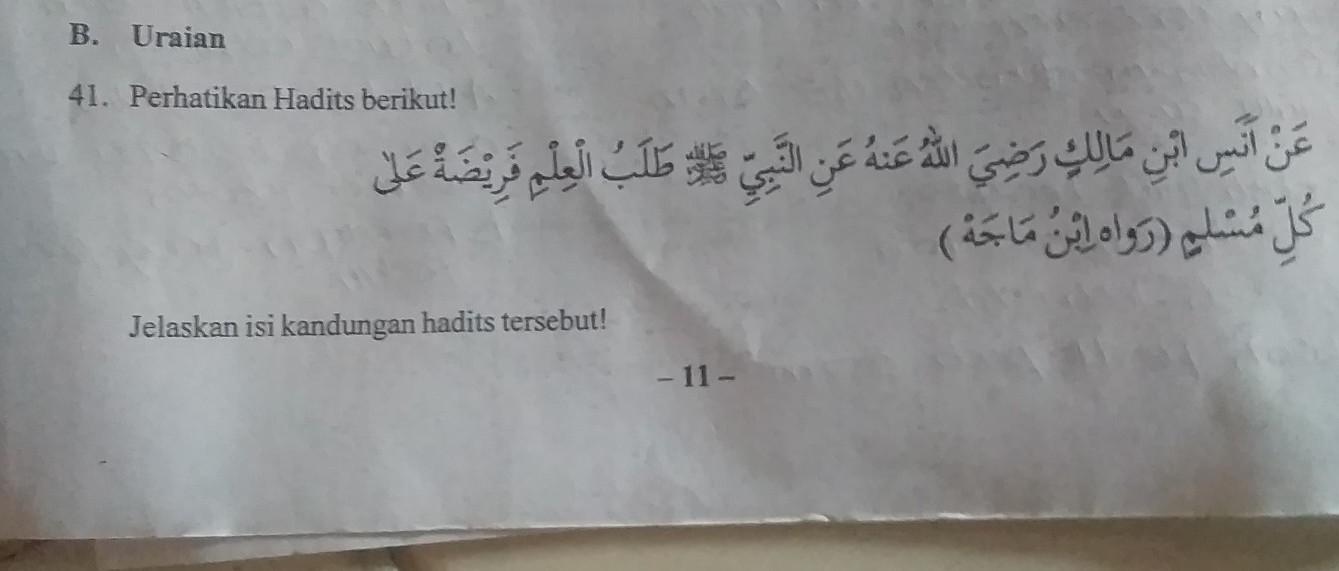 B. Uraian
41. Perhatikan Hadits berikut!
عَنْ اَنَسِ ابْنِ مَالِكٍ رَضِيَ اللّٰهُ عَنهُ عَنِ النَّبِيِّ ﷺ طَلَبُ الْعِلْمِ فَرِيْضَةٌ عَلىٰ
كُلِّ مُسْلِمٍ (رَوَاه اِبْنُ مَاجَهْ)
Jelaskan isi kandungan hadits tersebut!
– 11 –